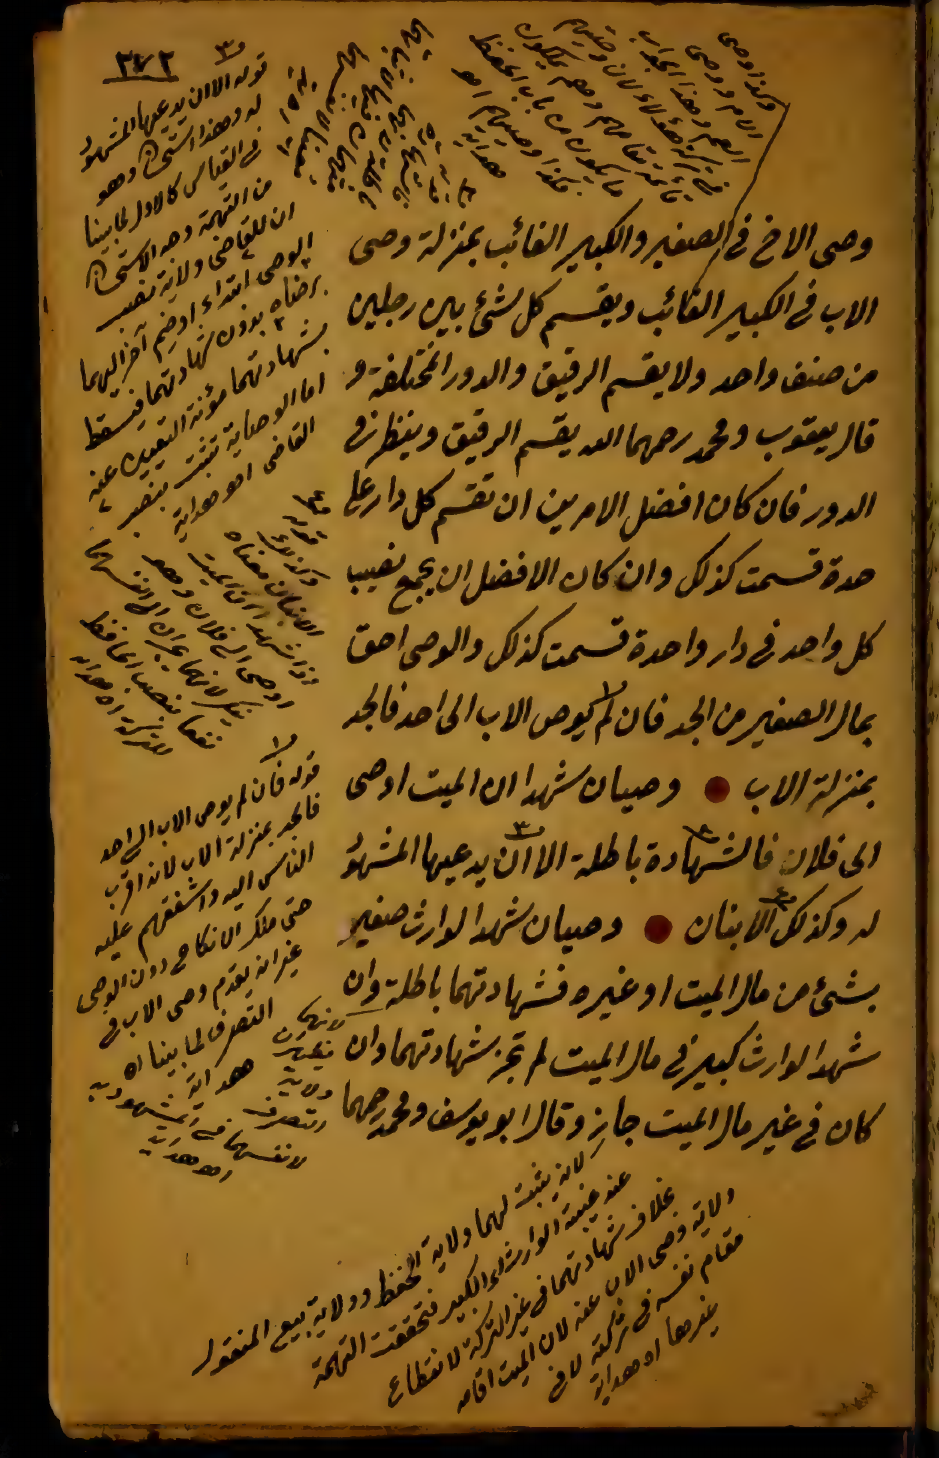 ٣٧٢
وكذا وصى
الام ووصى
العم وهذا الجواب
في تركة هؤلاء لان وصيهم
قائم مقامهم وهم يملكون
ما يكون من باب الحفظ
فكذا وصيهم اه
هداية
وصى الاخ فى الصغير والكبير الغائب بمنزلة وصى
الاب فى الكبير الغائب ويقسم كل شئ بين رجلين
من صنف واحد ولا يقسم الرقيق والدور المختلفة و
قال يعقوب ومحمد رحمهما الله يقسم الرقيق وينظر فى
الدور فان كان افضل الامرين ان تقسم كل دار على
حدة قسمت كذلك وان كان الافضل ان يجمع نصيب
كل واحد فى دار واحدة قسمت كذلك والوصى احق
بمال الصغير من الجد فان لم يوص الاب الى احد فالجد
بمنزلة الاب وصيان شهدا ان الميت اوصى
الى فلان فالشهادة باطلة الا ان يدعيها المشهود
له وكذلك الابنان وصيان شهدا لوارث صغير
بشئ من مال الميت او غيره فشهادتهما باطلة وان
شهدا لوارث كبير فى مال الميت لم تجز شهادتهما وان
كان فى غير مال الميت جاز وقال ابو يوسف ومحمد رحمهما
٣
قوله الا ان يدعيها المشهود
له وهذا استحسان وهو
فى القياس كالاول لما بينا
من التهمة وجه الاستحسان
ان للقاضى ولاية نصب
الوصى ابتداء او ضم اخر اليهما
برضاه بدون شهادتهما فيسقط
بشهادتهما مؤنة التعيين عنه
اما الوصاية تثبت بنصب
القاضى اه هداية
٤
قوله
وكذلك
الابنان معناه
اذا شهدا ان الميت
اوصى الى فلان وهو
ينكر لانهما يجران الى انفسهما
نفعا بنصب الحافظ
للتركة اه هداية
١
قوله فان لم يوص الاب الى احد
فالجد بمنزلة الاب لانه اقرب
الناس اليه واشفقهم عليه
حتى ملك الانكاح دون الوصى
غير انه يقدم وصى الاب فى
التصرف لما بيناه اه
هداية
لانهما
يظهران
ولاية
التصرف
لانفسهما فى المشهود به
اه هداية
لانه يثبت لهما ولاية الحفظ وولاية بيع المنقول
عند غيبة الوارث الكبير فتحققت التهمة
بخلاف شهادتهما فى غير التركة لانقطاع
ولاية وصى الاب عنه لان الميت اقامه
مقام نفسه فى تركته لا فى
غيرها اه هداية